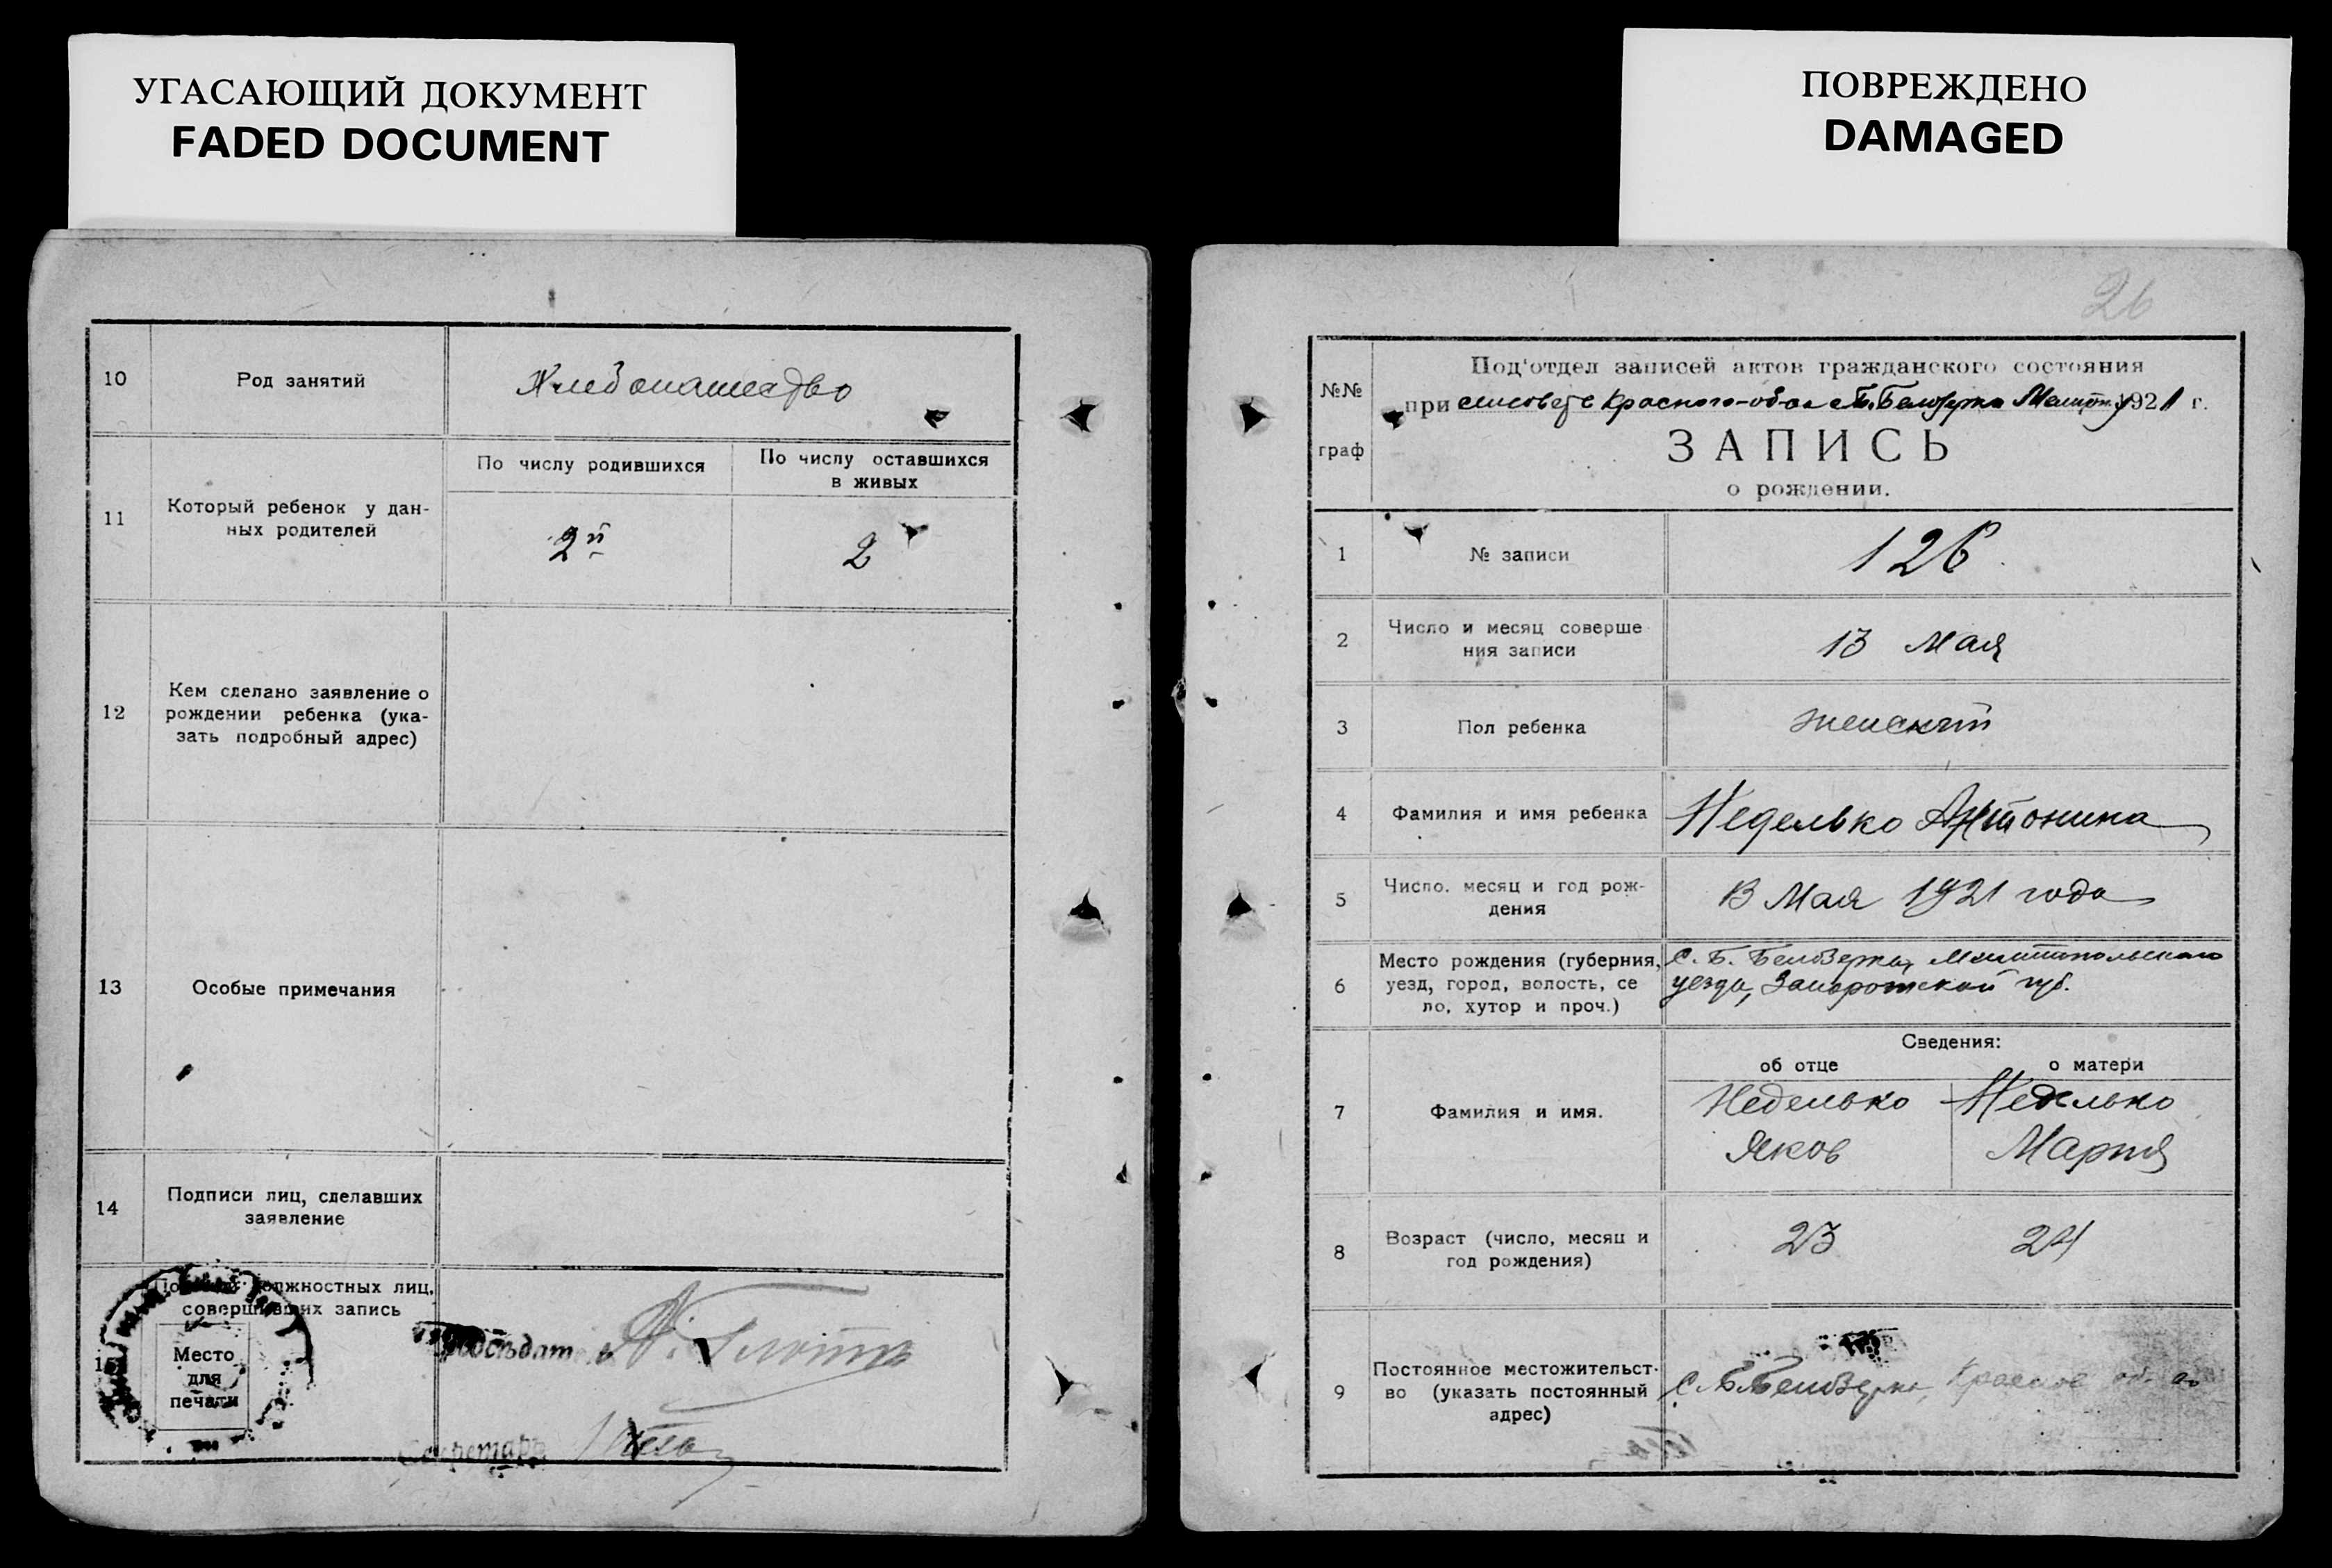 УГАСАЮЩИЙ ДОКУМЕНТ
FADED DOCUMENT
10
Род занятий
Хлебопашество
11
Который ребенок у дан-
ных родителей
По числу родившихся
2й
По числу оставшихся
в живых
2
12
Кем сделано заявление о
рождении ребенка (ука-
зать подробный адрес)
13
Особые примечания
14
Подписи лиц, сделавших
заявление
должностных лиц,
совершивших запись
Место
для
печати
Секретарь
ПОВРЕЖДЕНО
DAMAGED
26
№№
граф
Под'отдел записей актов гражданского состояния
при Белозерка 1921 г.
ЗАПИСЬ
о рождении.
1
№ записи
126
2
Число и месяц соверше
ния записи
13 Мая
3
Пол ребенка
женский
4
Фамилия и имя ребенка
Неделько Антонина
5
Число. месяц и год рож-
дения
13 Мая 1921 года
6
Место рождения (губерния,
уезд, город, волость, се
ло, хутор и проч.)
С. Б. Белозерка, Мелитопольского
уезда, Запорожской губ.
Сведения:
об отце
о матери
7
Фамилия и имя.
Неделько
Яков
Неделько
Мария
8
Возраст (число, месяц и
год рождения)
23
24
9
Постоянное местожительст-
во (указать постоянный
адрес)
С. Б. Белозерка,